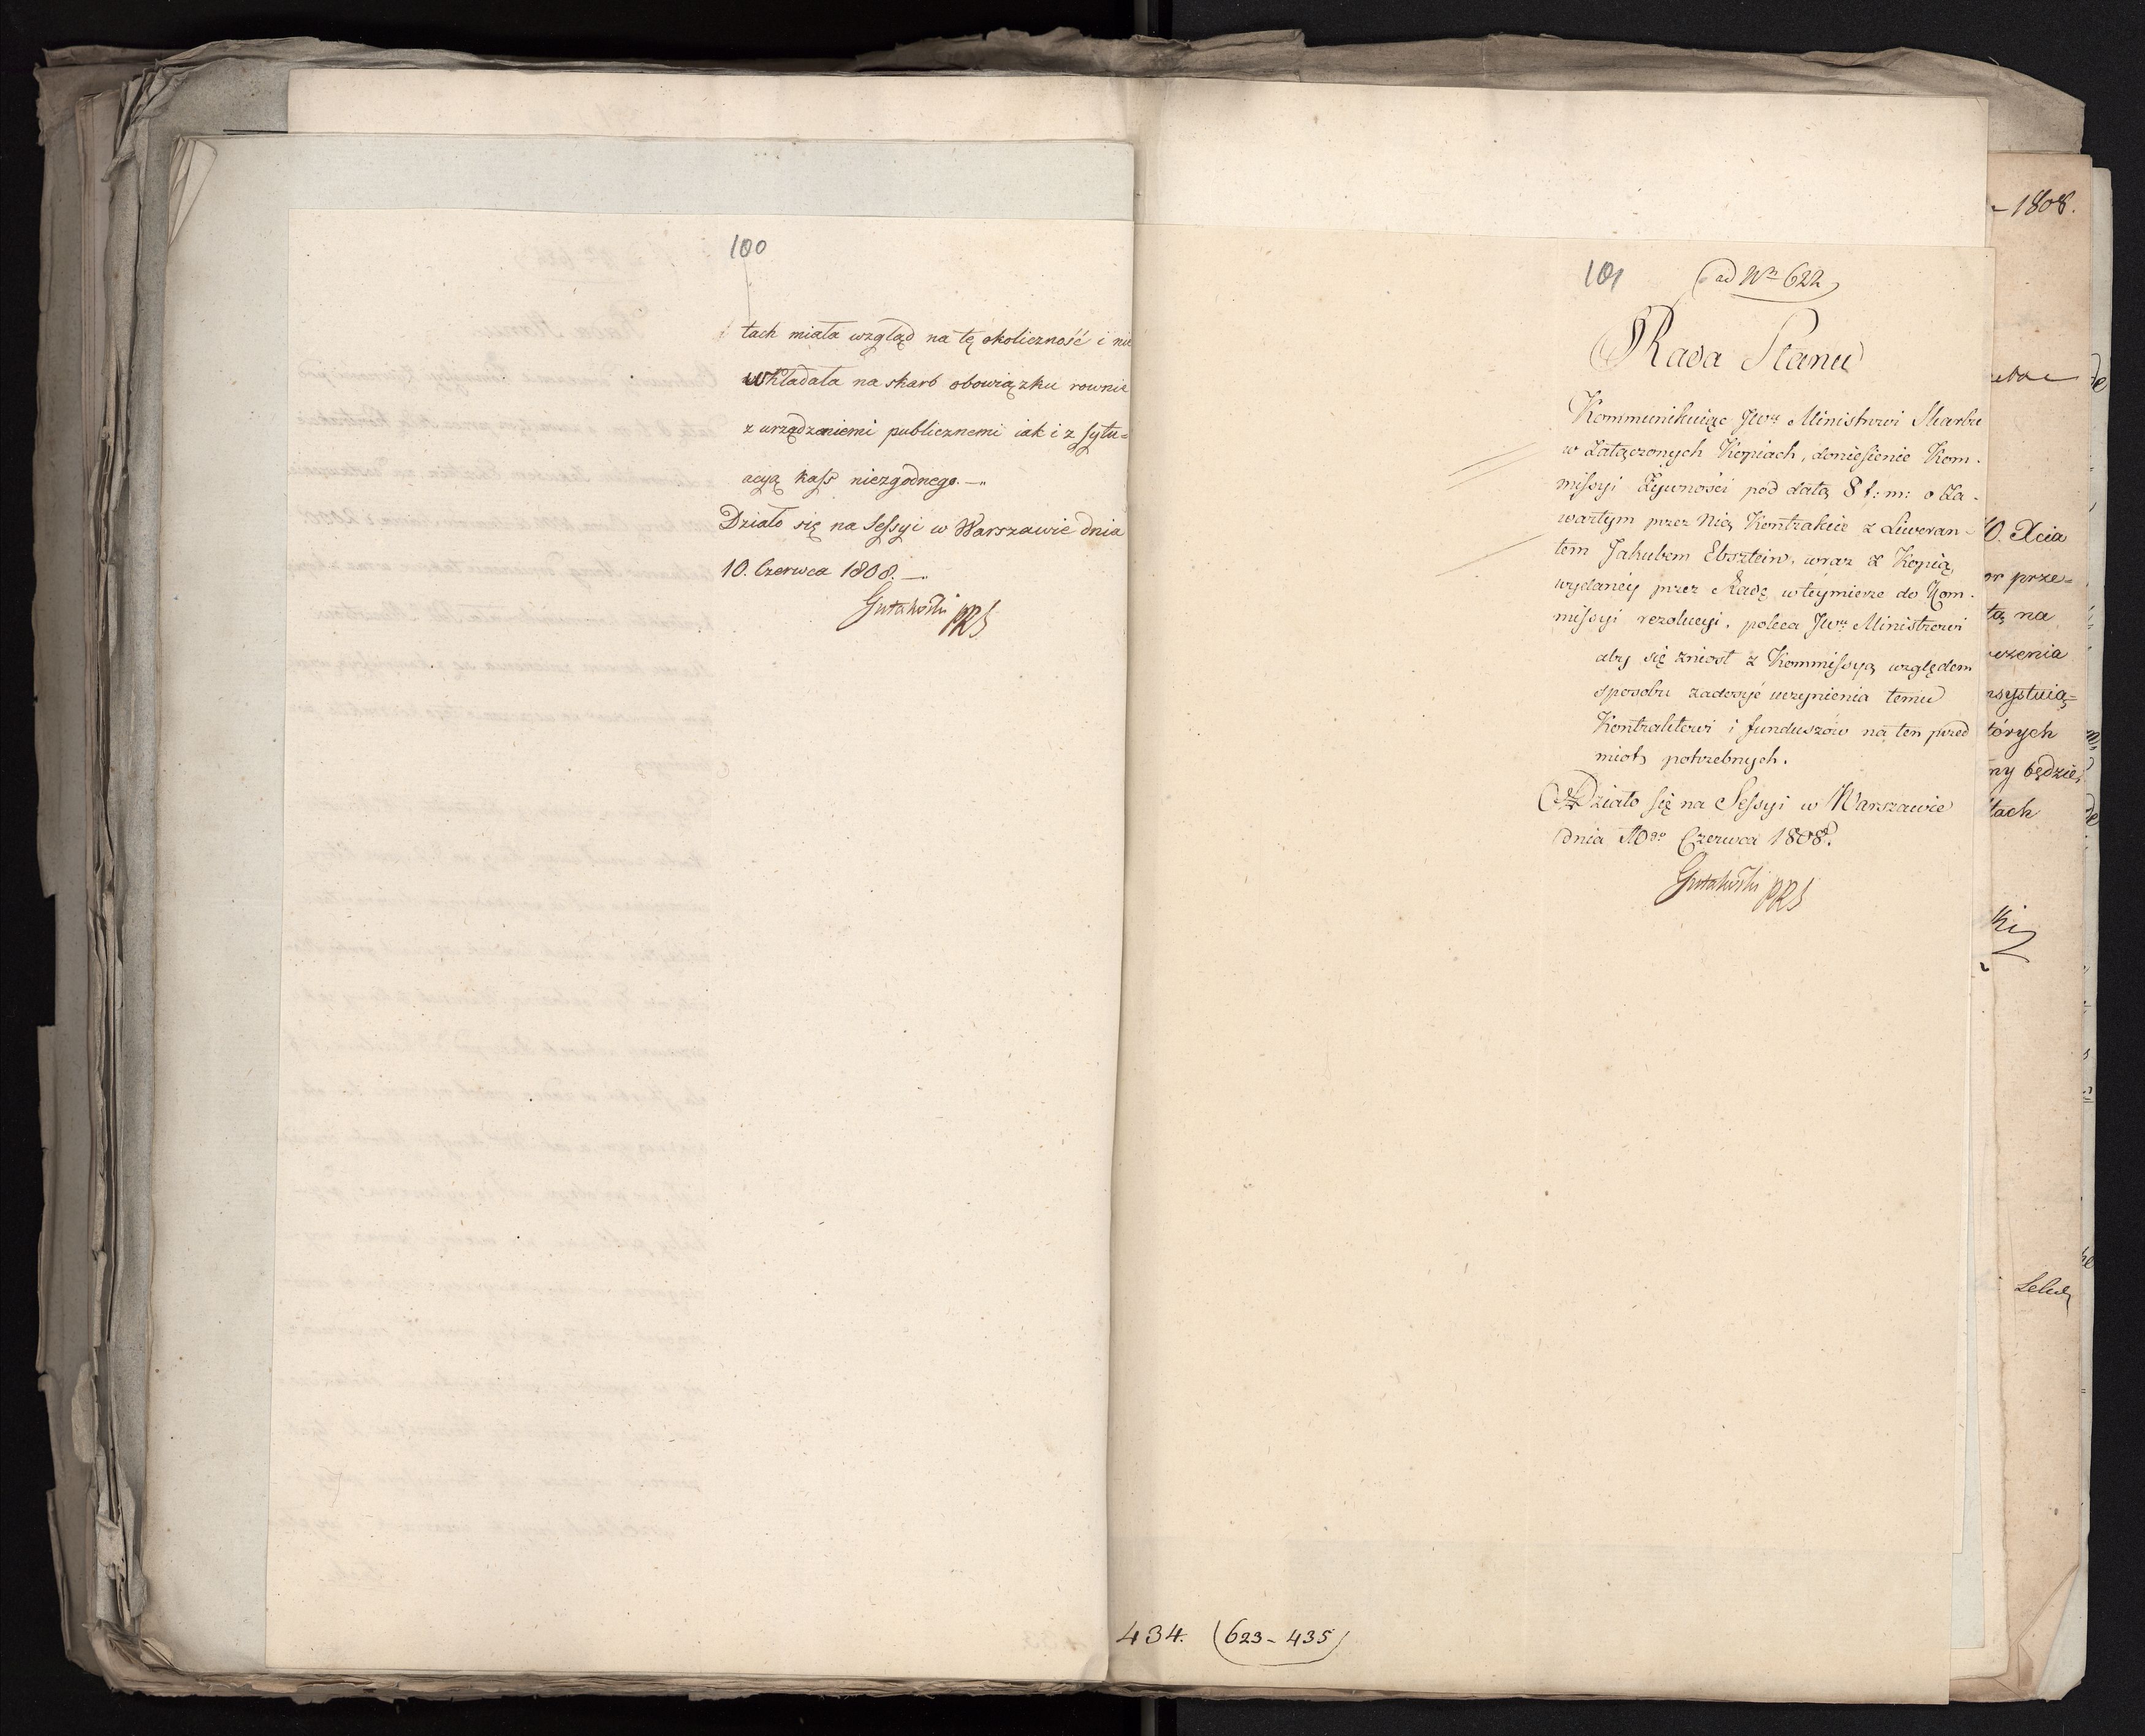 100
tach miała wzgląd na tę okoliczność i nie
wkładała na skarb obowiązku rownie
z urządzeniemi publicznemi iak i z sytu=
acyą kass niezgodnego. —
Działo się na Sessyi w Warszawie dnia
10. Czerwca 1808. —
Gutakowski PRS
101
ad Nrn 622
Rada Stanu
Kommunikuiąc JWmu Ministrowi Skarbu
w Załączonych Kopiach, doniesienie Kom-
missyi Żywności pod datą 8 t: m: o Za-
wartym przez Nią Kontrakcie z Liweran-
tem Jakubem Ebsztein, wraz z Kopią,
wydaney przez Radę w teymierze do Kom-
missyi rezolucyi, poleca JWmu Ministrowi
aby się zniost z Kommissyą względem
sposobu zadosyć uczynienia temu
Kontraktowi i funduszów na ten przed
miot potrzebnych.
Działo się na Sessyi w Warszawie
dnia 10go Czerwca 1808.
Gutakowski PRS
434. (623 - 435)
- 1808.
0. Xcia
prze=
tą na
czenia
nsystuią=
tórych
ny będzie,
tach
ki